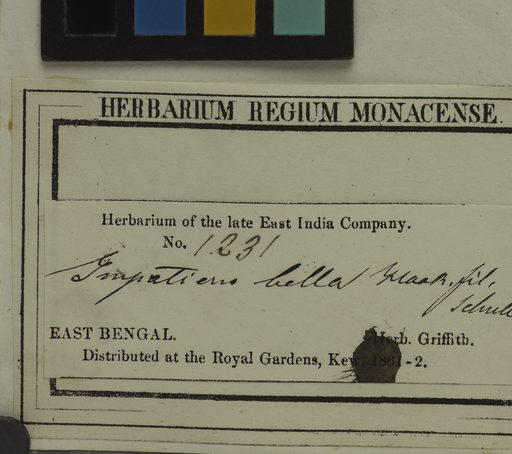 HERBARIUM REGIUM MONACENSE.
Herbarium of the late East India Company.
No. 1231
Impatiens bella Hook. fil.
EAST BENGAL. Herb. Griffith.
Distributed at the Royal Gardens, Kew, 1861-2.